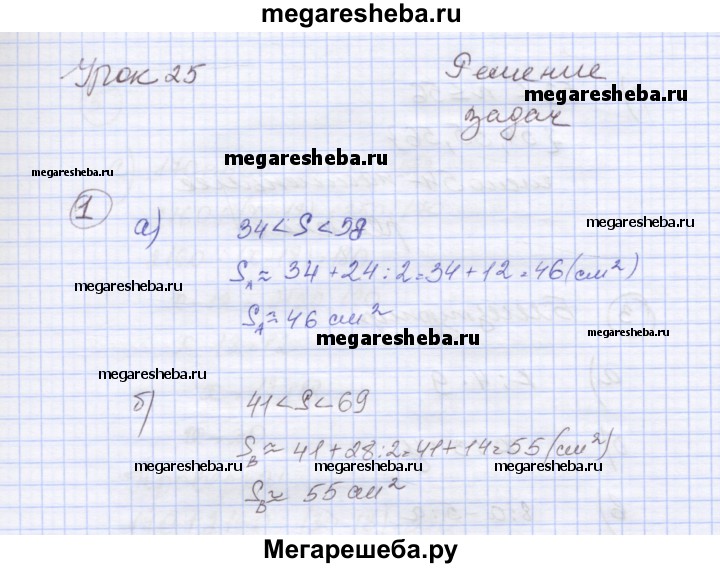 megaresheba.ru
Урок 25 Решение
megaresheba.ru
задач
megaresheba.ru
megaresheba.ru
1
а) 34 < S < 58
megaresheba.ru
S_A ≈ 34 + 24 : 2 = 34 + 12 = 46 (см²)
megaresheba.ru
S_A ≈ 46 см²
megaresheba.ru
megaresheba.ru
megaresheba.ru
megaresheba.ru
б) 41 < S < 69
S_B ≈ 41 + 28 : 2 = 41 + 14 = 55 (см²)
megaresheba.ru megaresheba.ru megaresheba.ru
S_B ≈ 55 см²
megaresheba.ru
Мегарешеба.ру